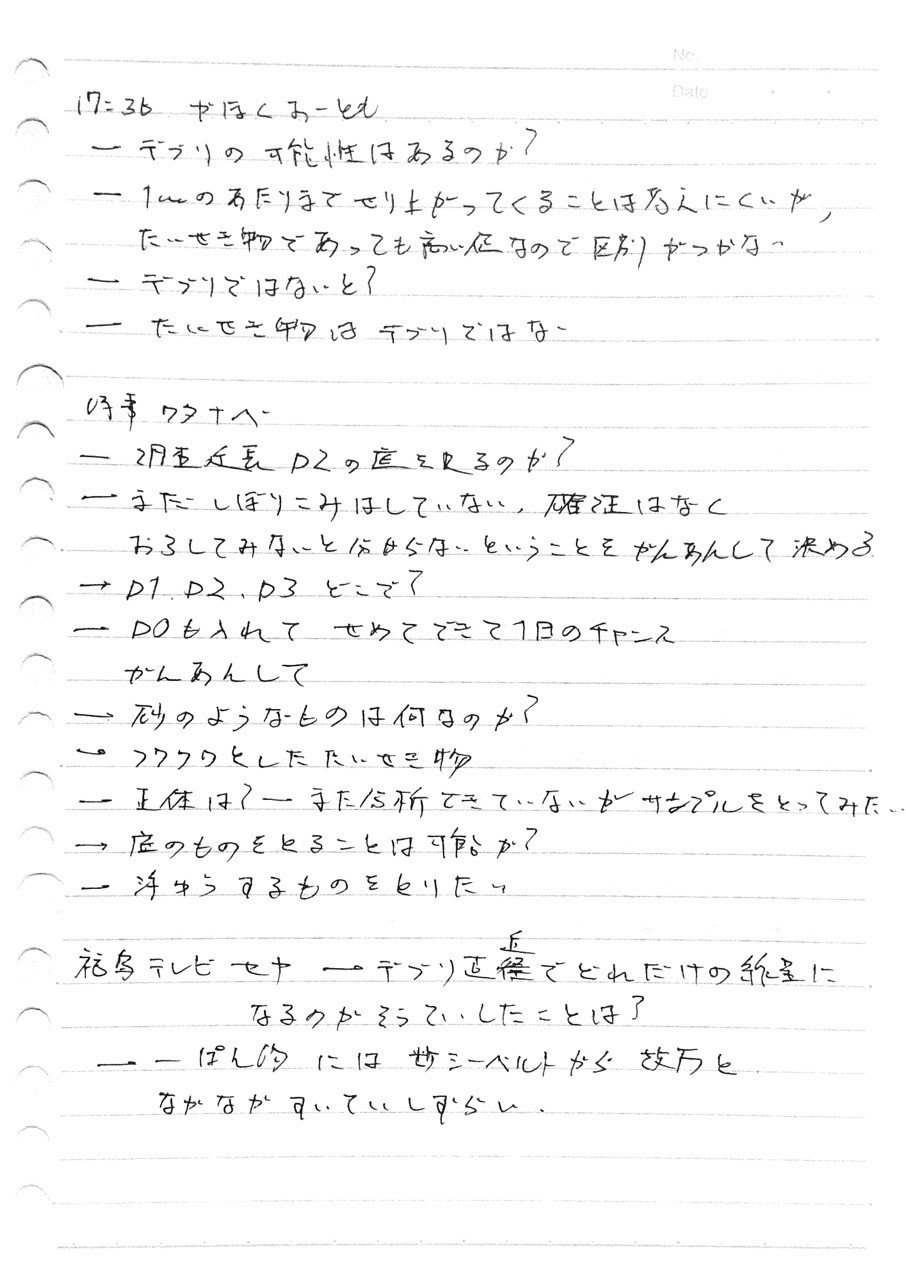 No.
Date
17:36 かほく おーとも
— デブリの可能性はあるのか?
— 1mのあたりまでせり上がってくることは考えにくいが,
たいせき物であっても高い値なので区別がつかない
— デブリではないと?
— たいせき物はデブリではない
時事 ワタナベ
— 調査延長 D2の底を見るのか?
— まだしぼりこみはしていない, 確証はなく
おろしてみないと分からないということをかんあんして決める
→ D1、D2、D3 どこで?
— D0も入れて せめてできて1日のチャンス
かんあんして
→ 砂のようなものは何なのか?
→ フワフワとしたたいせき物
— 正体は? — まだ分析できていないがサンプルをとってみたい
→ 底のものをとることは可能か?
— 浮ゆうするものをとりたい
福島テレビ セヤ → デブリ直径でどれだけの線量に
なるのかそうていしたことは?
— 一ぱん的には 数シーベルトから 数万と
なかなかすいていしずらい.